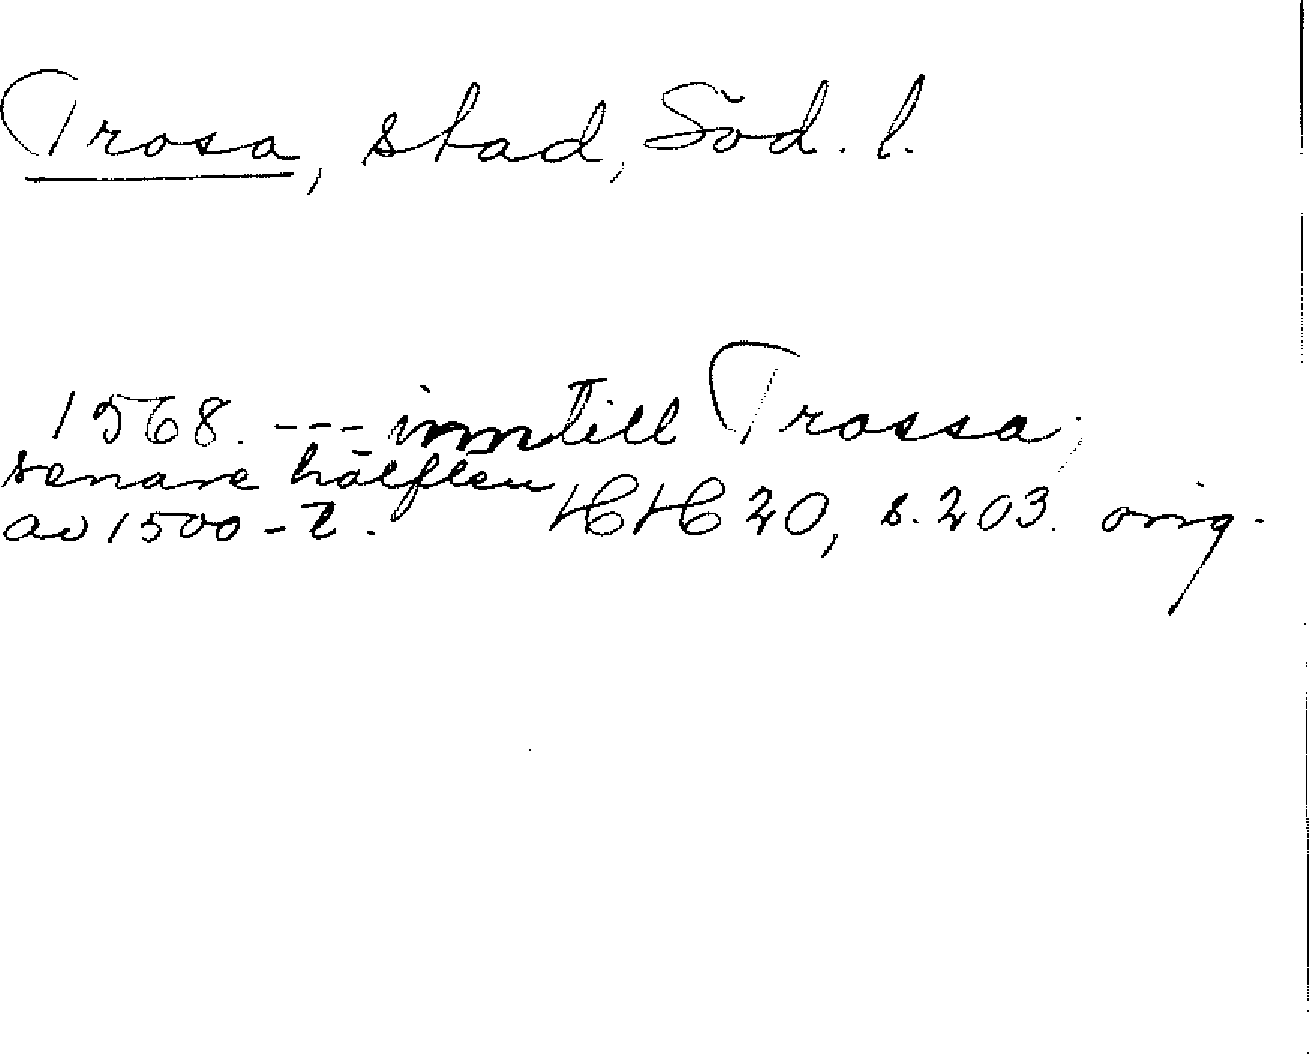 Trosa, stad, Söd. l.
1568. --- inn till Trossa;
senare hälften
av 1500-t. HH 20, s. 203. orig.